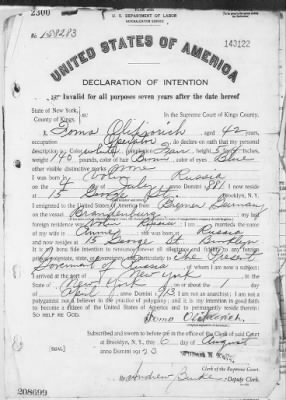 2300
U. S. DEPARTMENT OF LABOR
NATURALIZATION SERVICE
No. 158283
143122
UNITED STATES OF AMERICA
DECLARATION OF INTENTION
Invalid for all purposes seven years after the date hereof
State of New York,
County of Kings,
ss:
In the Supreme Court of Kings County.
I, Foma, aged 42 years,
occupation Operator, do declare on oath that my personal
description is: Color white, complexion Fair, height 5 feet inches,
weight 140 pounds, color of hair Brown, color of eyes Blue
other visible distinctive marks None
I was born in Russia
on the day of July, anno Domini 1881; I now reside
at 15 George St., Brooklyn, N. Y.
I emigrated to the United States of America from Bremen German
on the vessel Brandenburg; my last
foreign residence was Russia; I am married; the name
of my wife is Annie; she was born at Russia
and now resides at 15 George St Brooklyn
It is my bona fide intention to renounce forever all allegiance and fidelity to any foreign
prince, potentate, state, or sovereignty, and particularly to The Present
Government of Russia, of whom I am now a subject;
I arrived at the port of New York, in the
State of New York, on or about the day
of, anno Domini 1913; I am not an anarchist; I am not a
polygamist nor a believer in the practice of polygamy; and it is my intention in good faith
to become a citizen of the United States of America and to permanently reside therein:
SO HELP ME GOD.
Subscribed and sworn to before me in the office of the Clerk of said Court
at Brooklyn, N. Y., this 6 day of August
anno Domini 1923
[SEAL]
Clerk of the Supreme Court.
By Andrew, Deputy Clerk.
208699